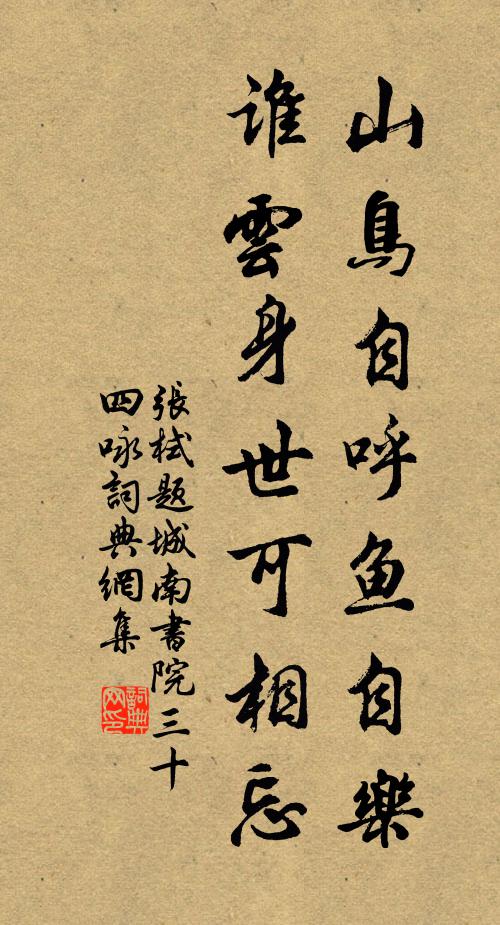 山鳥自呼鱼自樂
誰雲身世可相忘
張栻題城南書院三十
四咏詞典網集
詞典网印